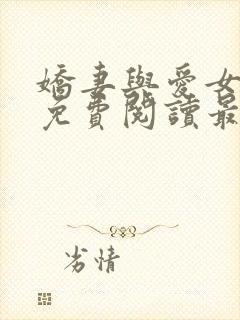 嬌妻與愛女
免費閱讀最
劣情